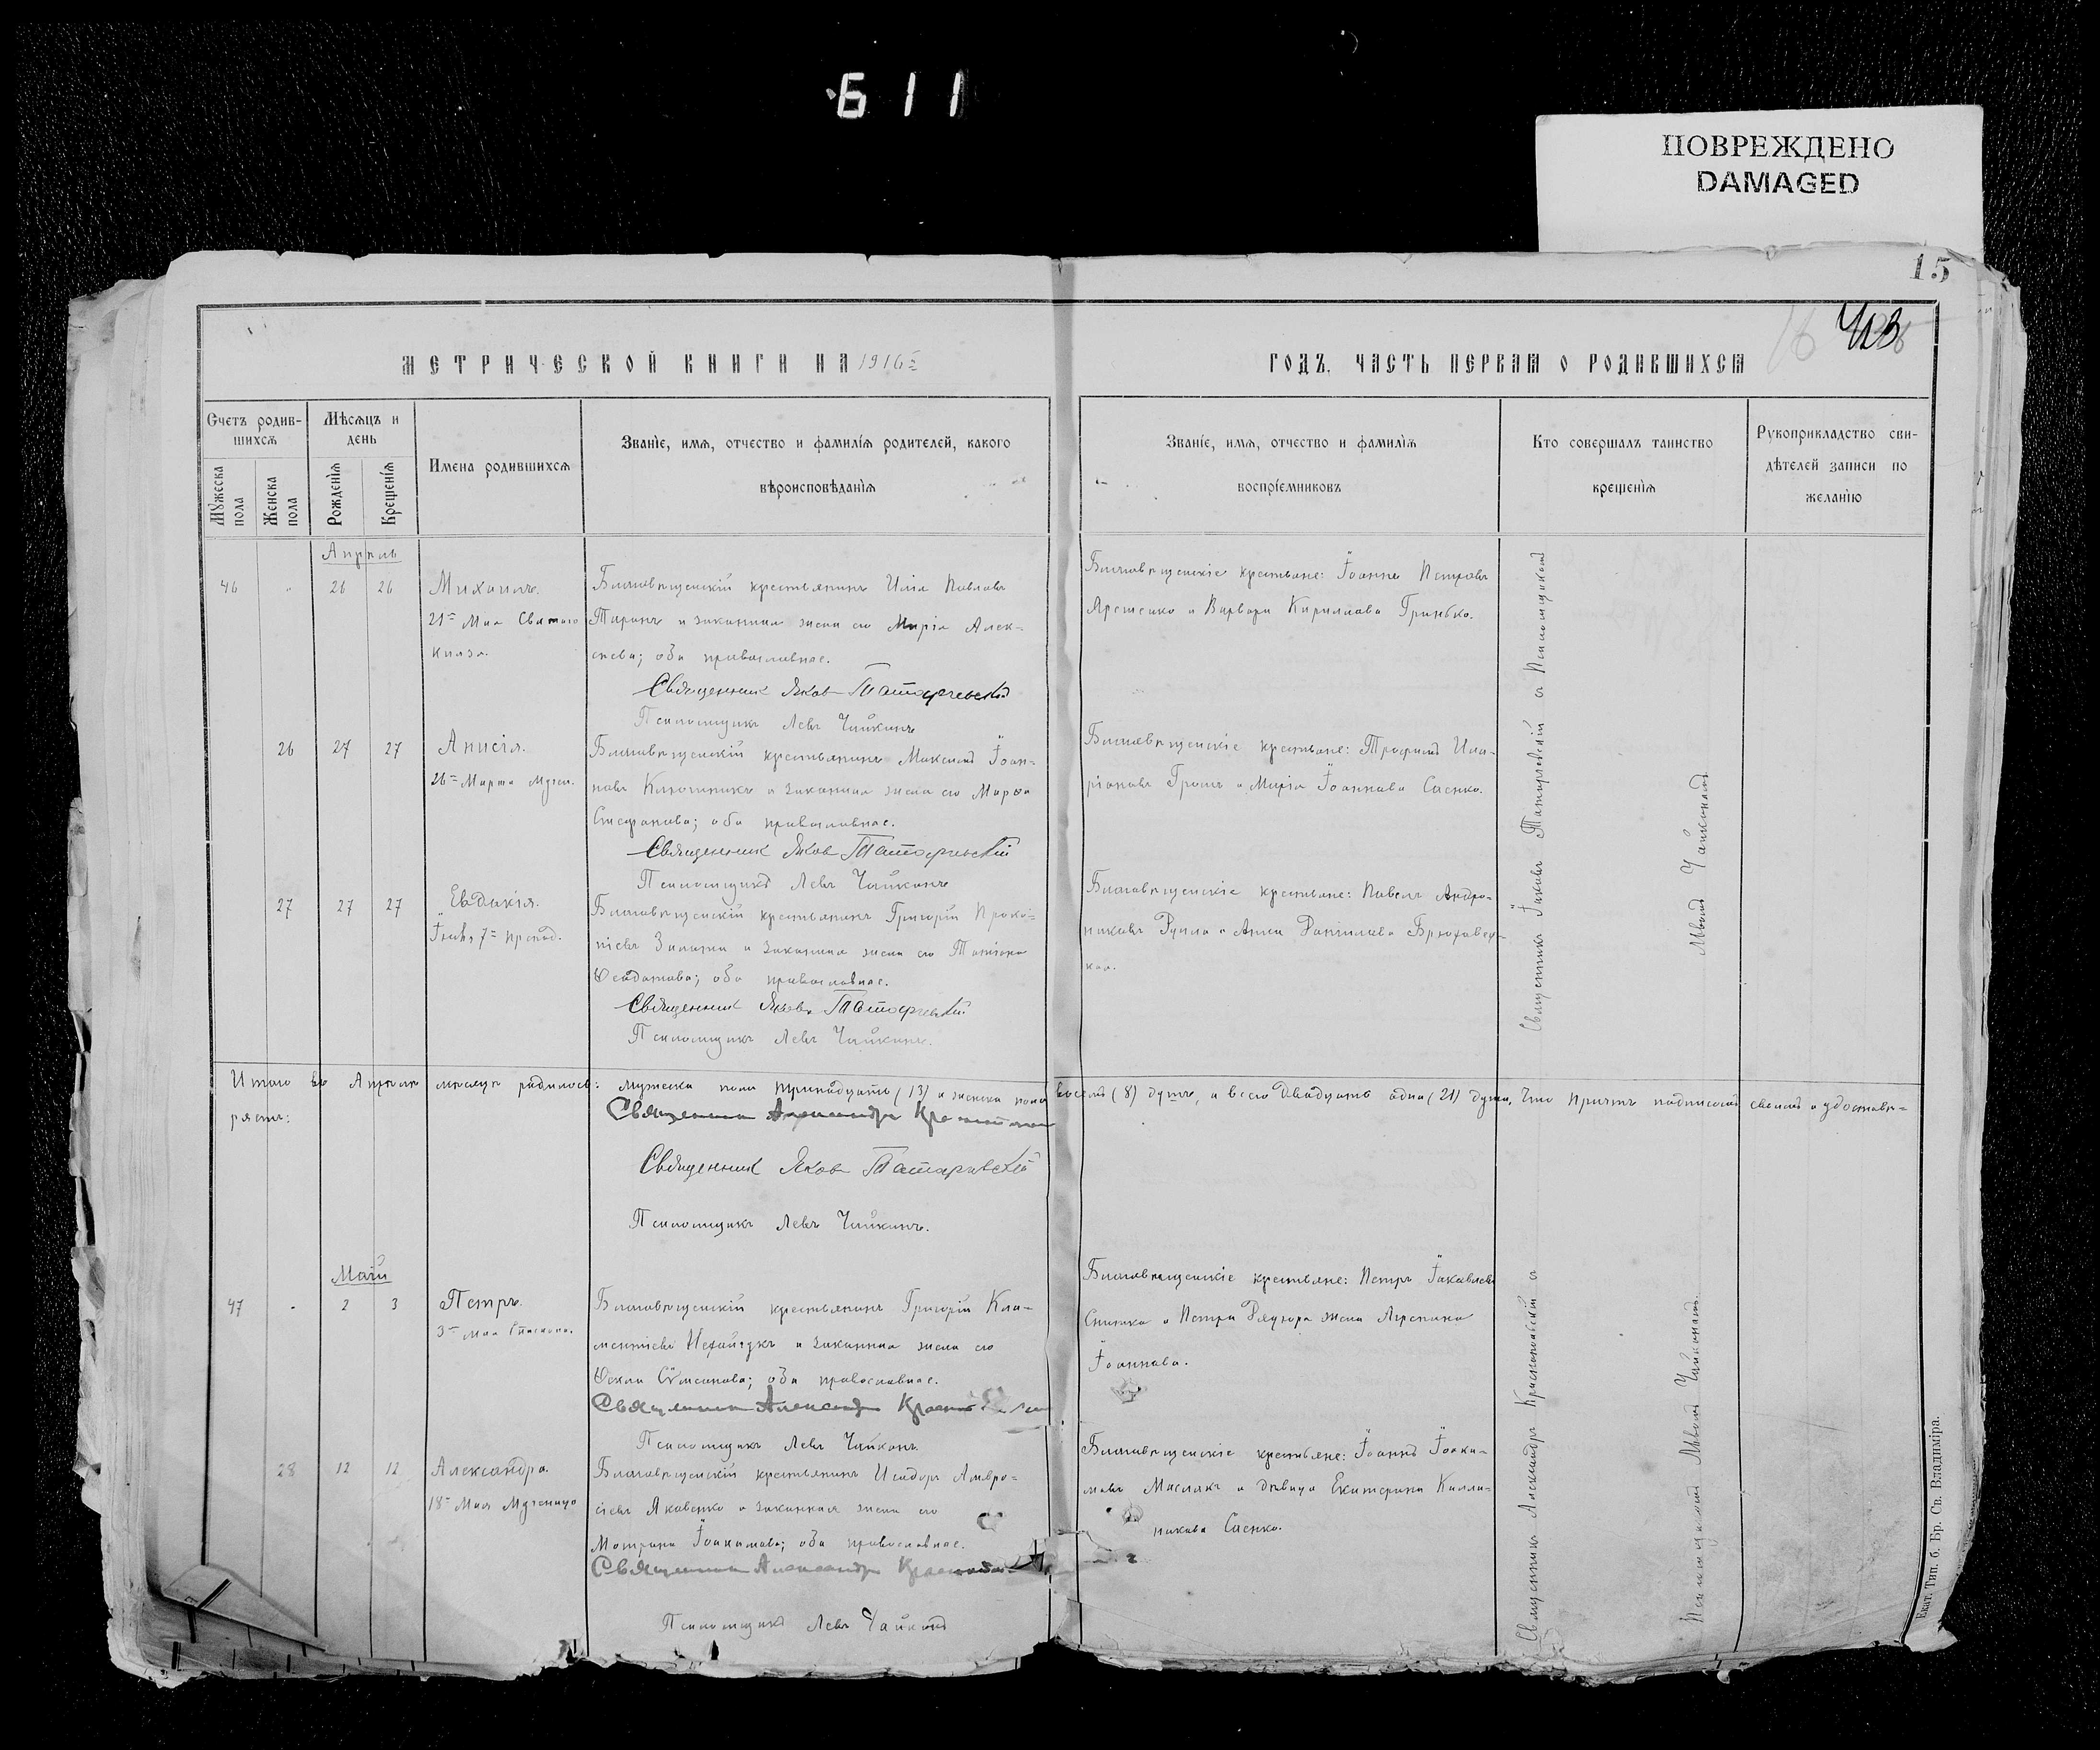 611
ПОВРЕЖДЕНО
DAMAGED
15
МЕТРИЧЕСКОЙ КНИГИ НА 1916 ГОДЪ, ЧАСТЬ ПЕРВАЯ О РОДИВШИХСЯ
Счетъ родив-
шихся
Мужеска
пола
Женска
пола
Мѣсяцъ и
день
Рожденія
Крещенія
Имена родившихся
Званіе, имя, отчество и фамилія родителей, какого
вѣроисповѣданія
Званіе, имя, отчество и фамилія
воспріемниковъ
Кто совершалъ таинство
крещенія
Рукоприкладство сви-
дѣтелей записи по
желанію
Апрѣль
46 26 26
Михаилъ.
21 Мая Святаго
Князя.
Благовѣщенскій крестьянинъ Илія Павловъ
Таранъ и законная жена его Марія Алек-
сѣева; оба православные.
Священник Яков Татаревский
Псаломщикъ Левъ Чайкинъ
Благовѣщенскіе крестьяне: Іоаннъ Петровъ
Ярешенко и Варвара Кириллова Гринько.
26 27 27
Анисія.
26 Марта Мучен.
Благовѣщенскій крестьянинъ Максимъ Іоан-
новъ Ключникъ и законная жена его Марѳа
Стефанова; оба православные.
Священник Яков Татаревский
Псаломщикъ Левъ Чайкинъ
Благовѣщенскіе крестьяне: Трофимъ Ила-
ріоновъ Грошъ и Марія Іоаннова Саенко.
27 27 27
Евдокія.
Іюля, 7 препод.
Благовѣщенскій крестьянинъ Григорій Проко-
піевъ и законная жена его Татіана
Ѳеодотова; оба православные.
Священник Яковъ Татаревский
Псаломщикъ Левъ Чайкинъ.
Благовѣщенскіе крестьяне: Павелъ Андро-
никовъ и Анна Даніилова Брюховец-
кая.
Священникъ Іаковъ Татаревскій съ Псаломщикомъ
Львомъ Чайкинымъ
Итого въ Апрѣлѣ мѣсяцѣ родилось: мужеска пола тринадцать (13) и женска пола восемь (8) душъ, а всего двадцать одна (21) душа, Что причтъ подписомъ своимъ и удостовѣ-
ряетъ:
Священник Александр
Священник Яков Татаревский
Псаломщикъ Левъ Чайкинъ.
Май
47 2 3
Петръ.
3 Мая
Благовѣщенскій крестьянинъ Григорій Кли-
ментіевъ и законная жена его
Ѳекла Сѵмеонова; оба православные.
Священник Александр
Псаломщикъ Левъ Чайкинъ.
Благовѣщенскіе крестьяне: Петръ Іаковлевъ
и Петра жена Агрепина
Іоаннова.
28 12 12
Александра.
18 Мая Мученица
Благовѣщенскій крестьянинъ Исидоръ Амвро-
сіевъ Яковенко и законная жена его
Матрона Іоакимова; оба православные.
Священник Александр
Псаломщикъ Левъ Чайкинъ
Благовѣщенскіе крестьяне: Іоаннъ Іоаки-
мовъ Маслякъ и дѣвица Екатерина Калли-
никова Саенко.
Священникъ Александръ съ
Псаломщикомъ Львомъ Чайкинымъ.
Екат. Тип. б. Бр. Св. Владиміра.